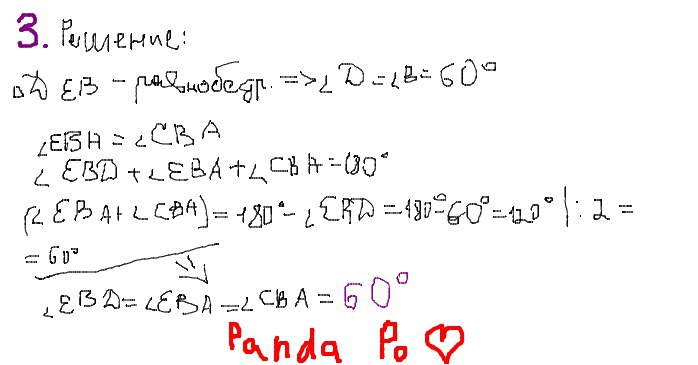 3. Решение:
△DEB - равнобедр. => ∠D = ∠B = 60°
∠EBA = ∠CBA
∠EBD + ∠EBA + ∠CBA = 180°
(∠EBA + ∠CBA) = 180° - ∠EBD = 180° - 60° = 120° | : 2 =
= 60°
∠EBD = ∠EBA = ∠CBA = 60°
Panda Po ♡